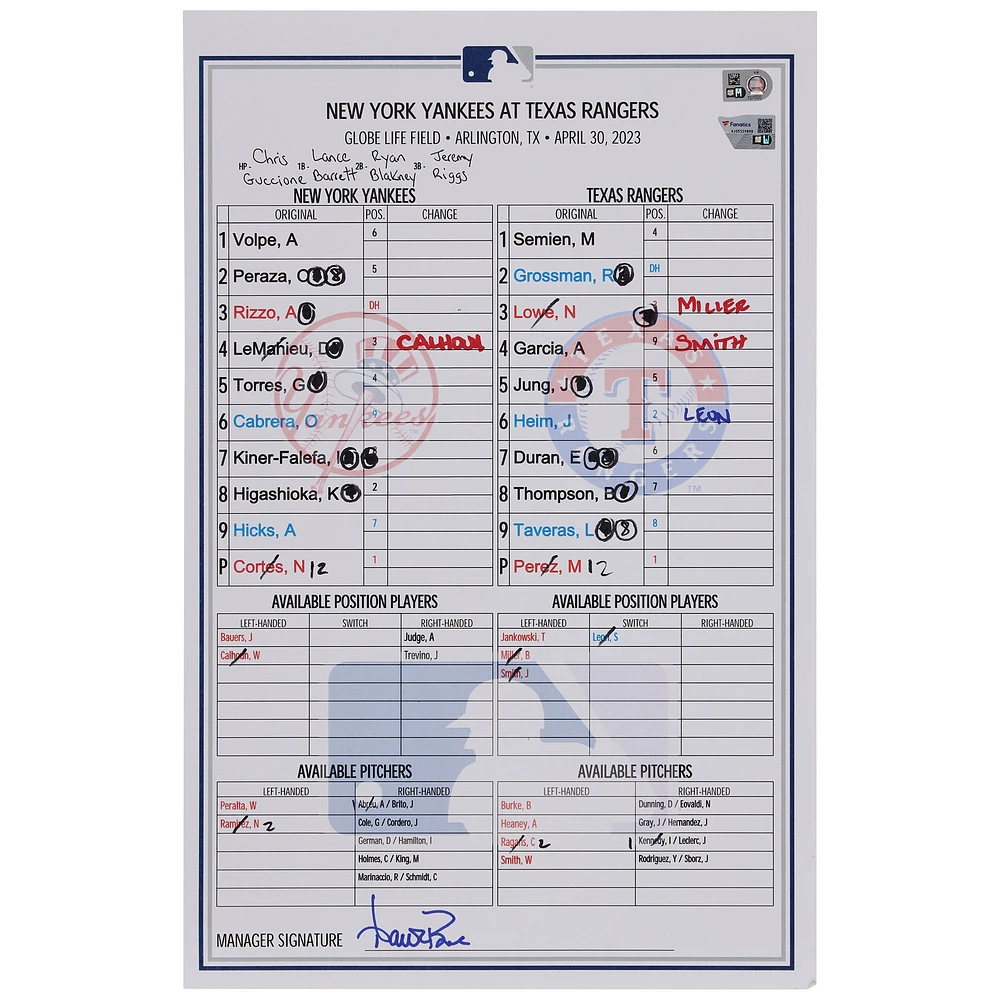 NEW YORK YANKEES AT TEXAS RANGERS
GLOBE LIFE FIELD • ARLINGTON, TX • APRIL 30, 2023
Fanatics
HP- Chris Guccione 1B- Lance Barrett 2B- Ryan Blakney 3B- Jeremy Riggs
NEW YORK YANKEES
ORIGINAL POS. CHANGE
1 Volpe, A 6
2 Peraza, O 8 5
3 Rizzo, A DH
4 LeMahieu, D 3 CALHOUN
5 Torres, G 4
6 Cabrera, O 9
7 Kiner-Falefa, I
8 Higashioka, K 2
9 Hicks, A 7
P Cortes, N 12 1
TEXAS RANGERS
ORIGINAL POS. CHANGE
1 Semien, M 4
2 Grossman, R DH
3 Lowe, N 3 MILLER
4 Garcia, A 9 SMITH
5 Jung, J 5
6 Heim, J 2 LEON
7 Duran, E 6
8 Thompson, B 7
9 Taveras, L 8 8
P Perez, M 12 1
Yankees
TEXAS RANGERS
T
TM
AVAILABLE POSITION PLAYERS
LEFT-HANDED SWITCH RIGHT-HANDED
Bauers, J Judge, A
Calhoun, W Trevino, J
AVAILABLE POSITION PLAYERS
LEFT-HANDED SWITCH RIGHT-HANDED
Jankowski, T Leon, S
Miller, B
Smith, J
AVAILABLE PITCHERS
LEFT-HANDED RIGHT-HANDED
Peralta, W 1 Abreu, A / Brito, J
Ramirez, N 2 Cole, G / Cordero, J
German, D / Hamilton, I
Holmes, C / King, M
Marinaccio, R / Schmidt, C
AVAILABLE PITCHERS
LEFT-HANDED RIGHT-HANDED
Burke, B Dunning, D / Eovaldi, N
Heaney, A Gray, J / Hernandez, J
Ragans, C 2 1 Kennedy, I / Leclerc, J
Smith, W Rodriguez, Y / Sborz, J
MANAGER SIGNATURE